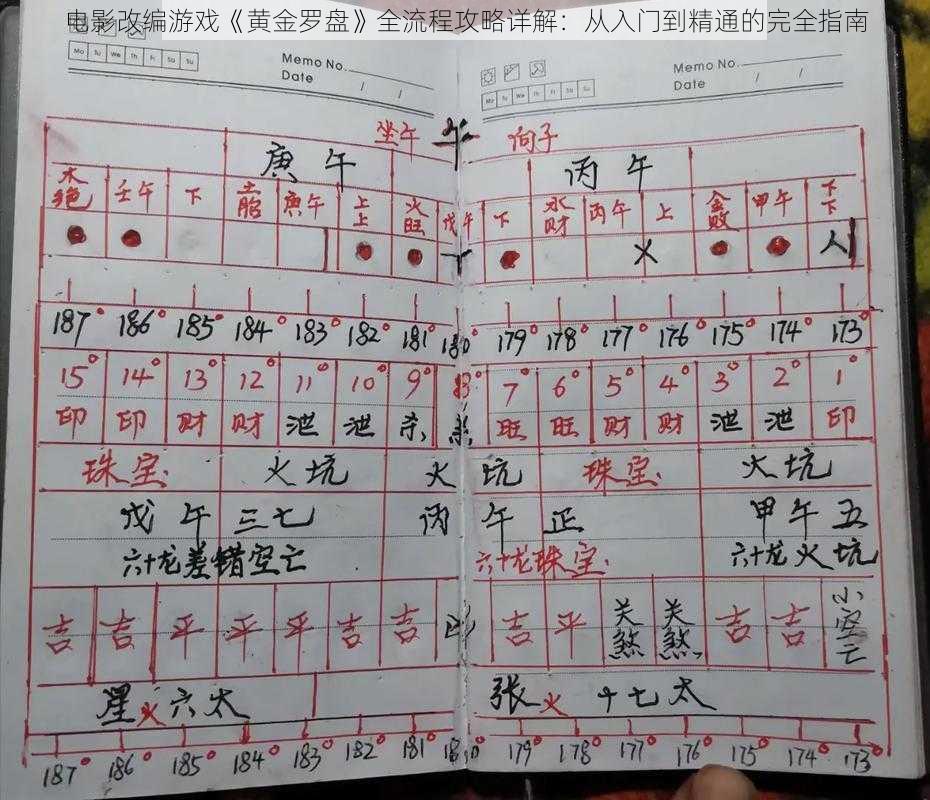 电影改编游戏《黄金罗盘》全流程攻略详解：从入门到精通的完全指南
Memo No.
Date / /
Mo Tu We Th Fr Sa Su
Memo No.
Date / /
Mo Tu We Th Fr Sa Su
坐午 午 向子
庚午 丙午
木绝 壬午 下 土胎 庚午 上上 火旺 戊午 下 水财 丙午 上 金败 甲午 下下
187° 186° 185° 184° 183° 182° 181° 180° 179° 178° 177° 176° 175° 174° 173°
15° 14° 13° 12° 11° 10° 9° 8° 7° 6° 5° 4° 3° 2° 1°
印 印 财 财 泄 泄 杀 杀 旺 旺 财 财 泄 泄 印
珠宝 火坑 火坑 珠宝 火坑
戊午三七 丙午正 甲午五
六十龙差错空亡 六十龙珠宝 六十龙火坑
吉 吉 平 平 平 吉 吉 吉 平 关煞 关煞 吉 吉 小空亡
星火六太 张火十七太
187° 186° 185° 184° 183° 182° 181° 180° 179° 178° 177° 176° 175° 174° 173°